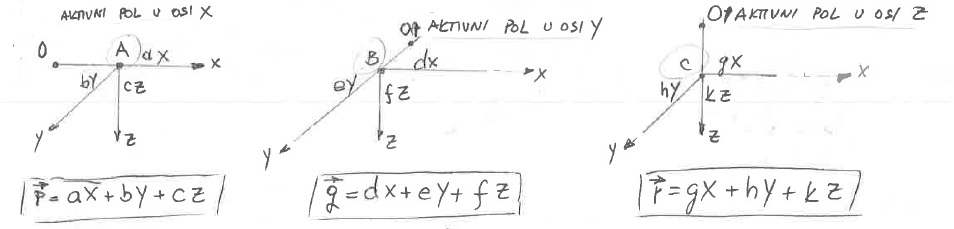 AKTIVNI POL U OSI X
O A aX X
bY cZ
Y Z
p⃗ = aX + bY + cZ
O₁ AKTIVNI POL U OSI Y
B dX X
eY fZ
Y Z
g⃗ = dX + eY + fZ
O₁ AKTIVNI POL U OSI Z
C gX X
hY kZ
Y Z
r⃗ = gX + hY + kZ